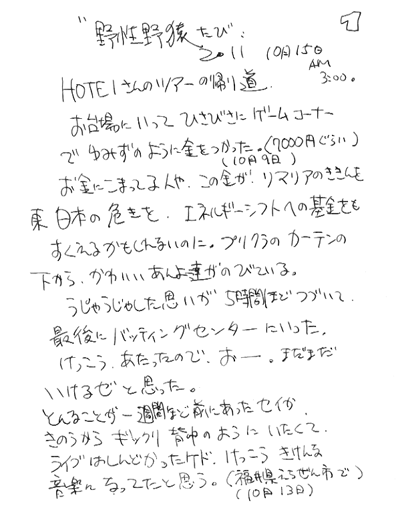 "野性野猿たび"
2011 10月15日
AM
3:00。
HOTEIさんのツアーの帰り道。
お台場にいって ひさびさに ゲームコーナー
で ゆみずのように金をつかった。(7000円ぐらい)
(10月9日)
お金にこまってる人や、この金が、リマリアのききんを
東日本の危きを、エネルギーシフトへの基金をも
すくえるかもしれないのに。プリクラの カーテンの
下から、かわいいあんよ達がのびている。
うじゃうじゃした思いが 5時間ほどつづいて、
最後に バッティングセンターにいった。
けっこう、あたったので、おー。まだまだ
いけるぜと思った。
とんることが一週間ほど前にあったセイか、
きのうから ギックリ背中のようにいたくて、
ライブはしんどかったケド、けっこう きけんな
音楽になってたと思う。(福井県えちぜん市で)
(10月13日)